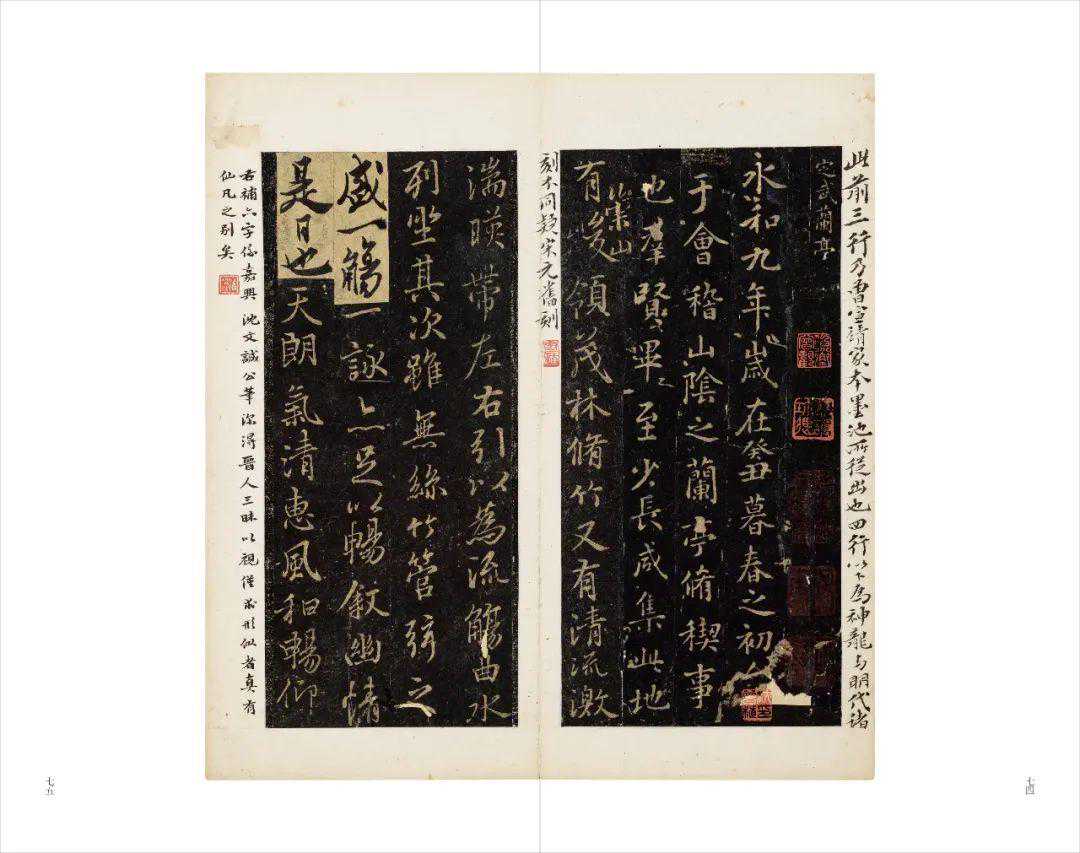 此前三行乃曹宣靖家本墨池所從出也四行以下為神龍与明代諸
定武蘭亭
永和九年歲在癸丑暮春之初會
于會稽山陰之蘭亭脩稧事
也羣賢畢至少長咸集此地
崇山
有峻領茂林脩竹又有清流激
刻不同疑宋元舊刻
湍暎帶左右引以為流觴曲水
列坐其次雖無絲竹管弦之
盛一觴一詠亦足以暢敘幽情
是日也天朗氣清惠風和暢仰
右補六字係嘉興沈文誠公筆深得晉人三昧以視僅求形似者真有
仙凡之別矣
七四
七五